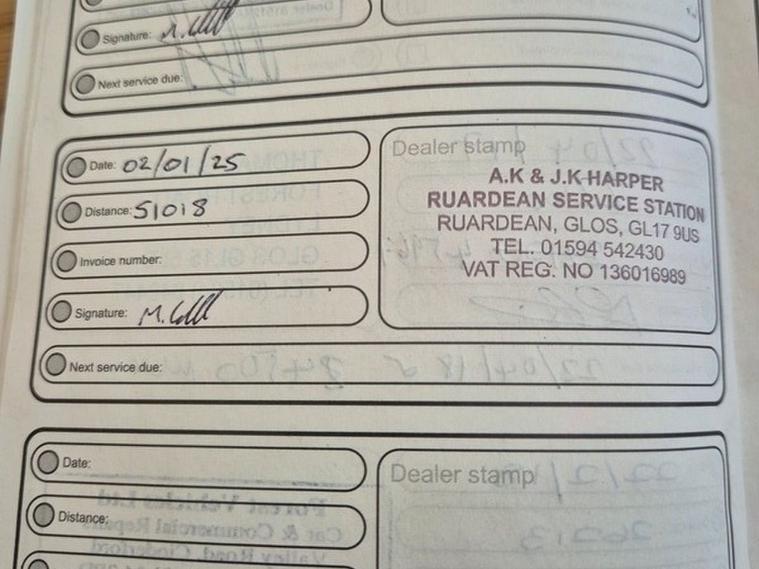 Signature:
Next service due:
Date: 02/01/25
Distance: 51018
Invoice number:
Signature: M.
Next service due:
Dealer stamp
A.K & J.K HARPER
RUARDEAN SERVICE STATION
RUARDEAN, GLOS, GL17 9US
TEL. 01594 542430
VAT REG. NO 136016989
Date:
Distance:
Dealer stamp